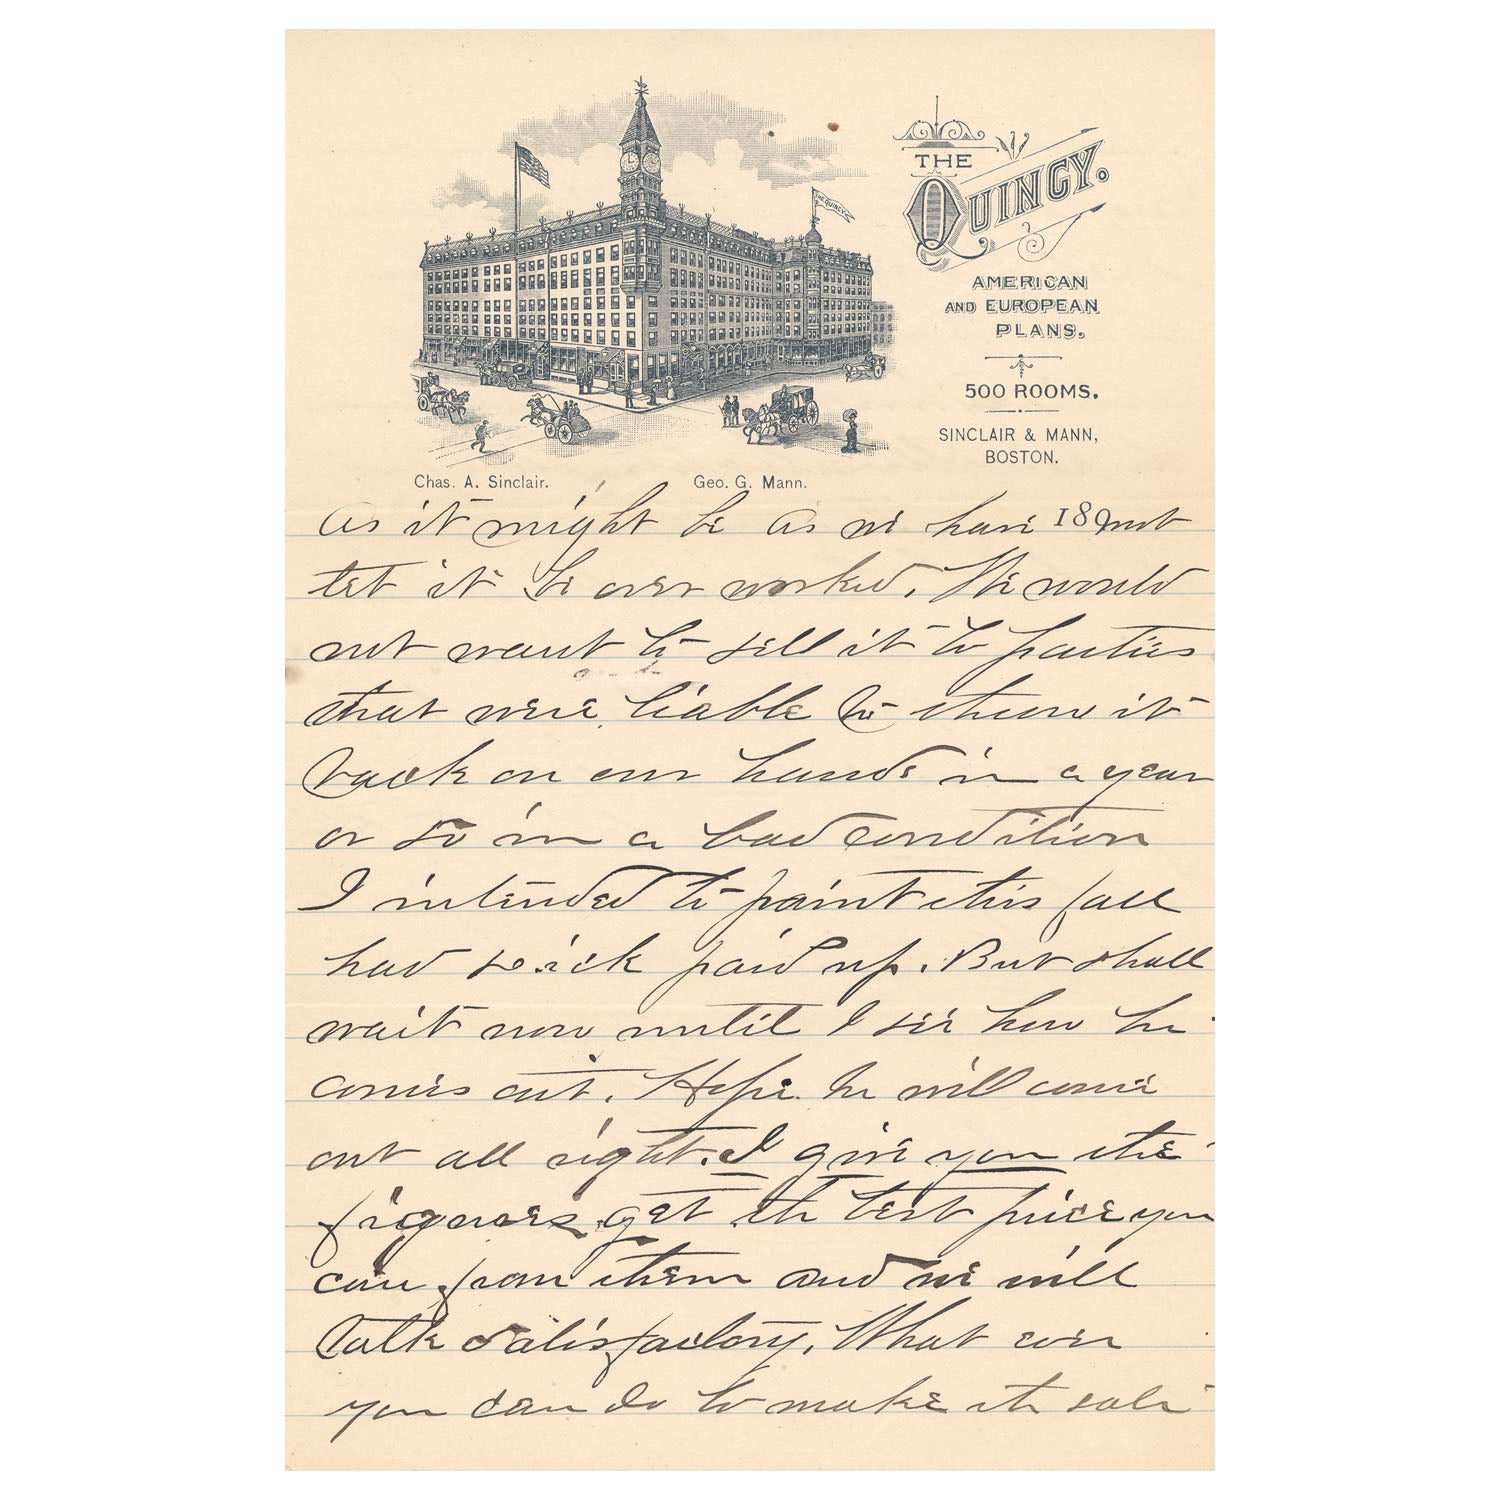 THE QUINCY.
THE
QUINCY.
AMERICAN
AND EUROPEAN
PLANS.
500 ROOMS.
SINCLAIR & MANN,
BOSTON.
Chas. A. Sinclair. Geo. G. Mann.
as it might be as we have 189 not
let it be over worked. We would
not want to sell it to parties
that were liable to throw it
back on our hands in a year
or so in a bad condition
I intended to paint this fall
had paid up. But shall
wait now until I see how he
comes out. Hope he will come
out all right. I give you the
figures get the best price you
can from them and we will
talk satisfactory. What ever
you can do to make the sale